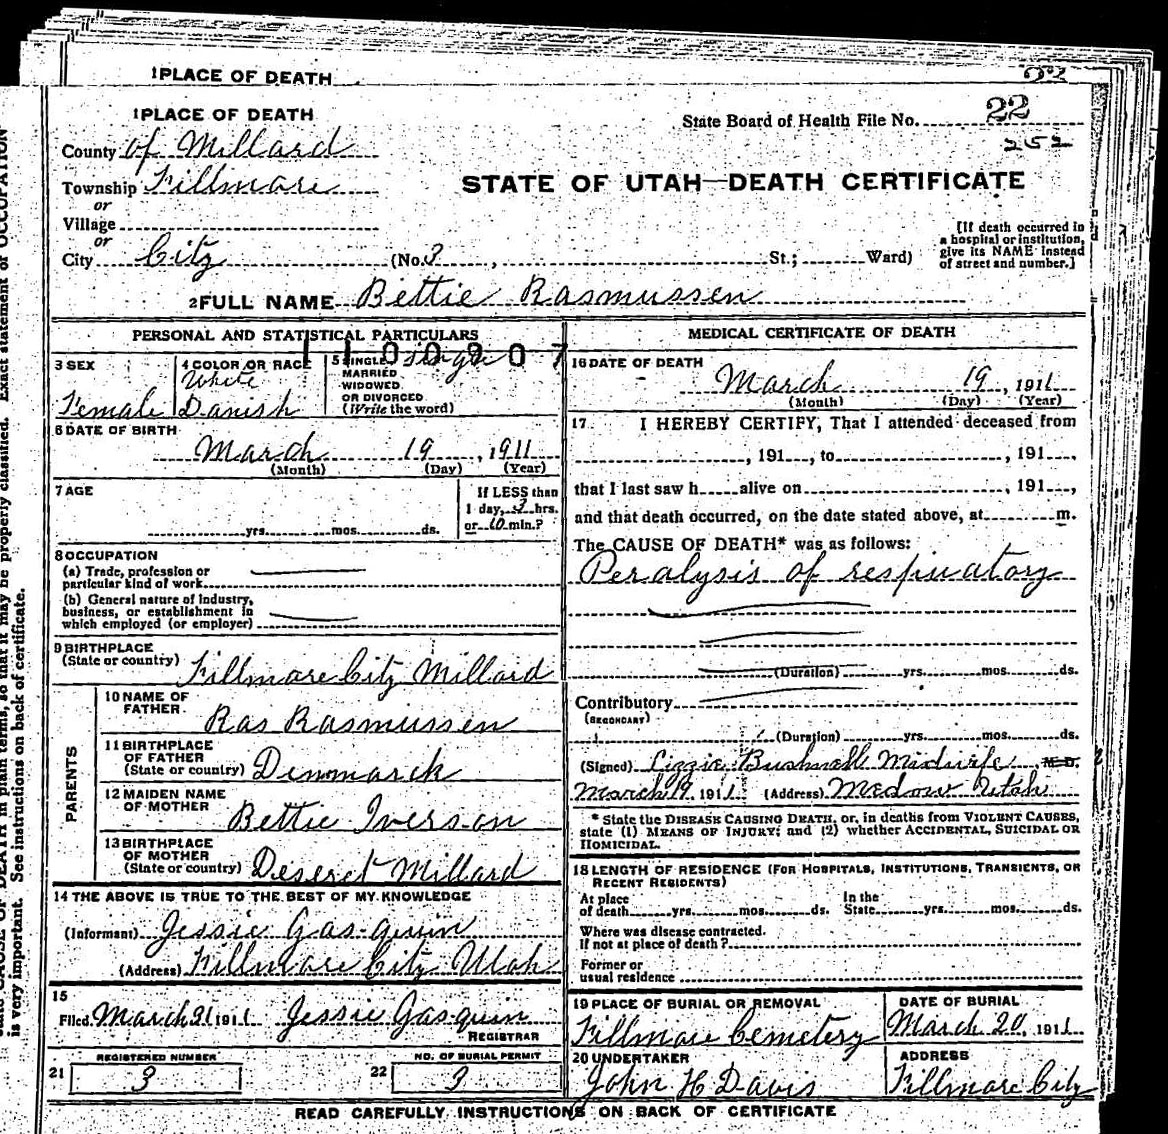 1 PLACE OF DEATH
1 PLACE OF DEATH
State Board of Health File No. 22
252
County of Millard
Township Fillmore
or
STATE OF UTAH—DEATH CERTIFICATE
Village
or
City City (No. 3, St.; Ward)
[If death occurred in
a hospital or institution,
give its NAME instead
of street and number.]
2 FULL NAME Bettie Rasmussen
PERSONAL AND STATISTICAL PARTICULARS
1100907
3 SEX
Female
4 COLOR OR RACE
White
Danish
5 SINGLE, Single
MARRIED
WIDOWED
OR DIVORCED
(Write the word)
6 DATE OF BIRTH
March 19, 1911
(Month) (Day) (Year)
7 AGE
yrs. mos. ds.
If LESS than
1 day, hrs.
or 10 min.?
8 OCCUPATION
(a) Trade, profession or
particular kind of work
(b) General nature of industry,
business, or establishment in
which employed (or employer)
9 BIRTHPLACE
(State or country) Fillmore City Millard
PARENTS
10 NAME OF
FATHER
Ras Rasmussen
11 BIRTHPLACE
OF FATHER
(State or country) Dinmarck
12 MAIDEN NAME
OF MOTHER
Bettie Iverson
13 BIRTHPLACE
OF MOTHER
(State or country) Deseret Millard
14 THE ABOVE IS TRUE TO THE BEST OF MY KNOWLEDGE
(Informant) Jessie Gasquin
(Address) Fillmore City Utah
15
Filed March 31 1911 Jessie Gasquin
REGISTRAR
REGISTERED NUMBER
21 3
NO. OF BURIAL PERMIT
22 3
MEDICAL CERTIFICATE OF DEATH
16 DATE OF DEATH
March 19, 1911
(Month) (Day) (Year)
17. I HEREBY CERTIFY, That I attended deceased from
, 191 , to , 191 ,
that I last saw h alive on , 191 ,
and that death occurred, on the date stated above, at m.
The CAUSE OF DEATH* was as follows:
Peralysis of respiratory
(Duration) yrs. mos. ds.
Contributory
(SECONDARY)
(Duration) yrs. mos. ds.
(Signed) Lizzie Bushnall Midwife M.D.
March 19 1911 (Address) Medow Utah
* State the DISEASE CAUSING DEATH, or, in deaths from VIOLENT CAUSES,
state (1) MEANS OF INJURY; and (2) whether ACCIDENTAL, SUICIDAL OR
HOMICIDAL.
18 LENGTH OF RESIDENCE (FOR HOSPITALS, INSTITUTIONS, TRANSIENTS, OR
RECENT RESIDENTS)
At place
of death yrs. mos. ds.
In the
State yrs. mos. ds.
Where was disease contracted.
If not at place of death?
Former or
usual residence
19 PLACE OF BURIAL OR REMOVAL
Fillmore Cemetery
DATE OF BURIAL
March 20, 1911
20 UNDERTAKER
John H Davis
ADDRESS
Fillmore City
READ CAREFULLY INSTRUCTIONS ON BACK OF CERTIFICATE
CAUSE OF DEATH in plain terms, so that it may be properly classified. Exact statement of OCCUPATION
is very important. See instructions on back of certificate.